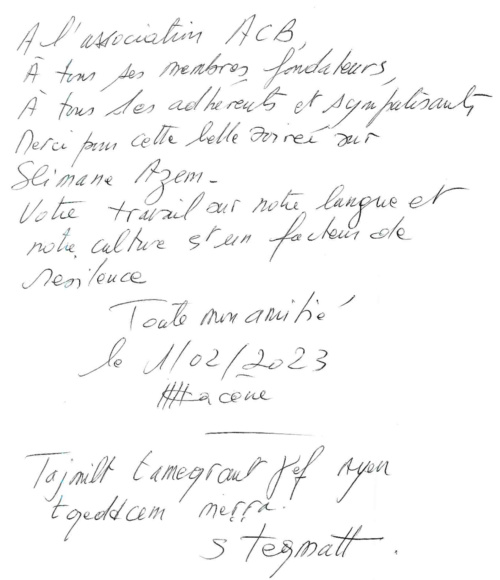 A l'association ACB,
À tous ses membres fondateurs,
À tous ses adhérents et sympatisants
Merci pour cette belle soireé sur
Slimane Azem-
Votre travail sur notre langue et
notre culture est un facteur de
resilence
Toute mon amitié
le 1/02/2023
Tajmilt tameqrant ɣef ayen
tqeddcem meṛṛa.
S Tegmatt.